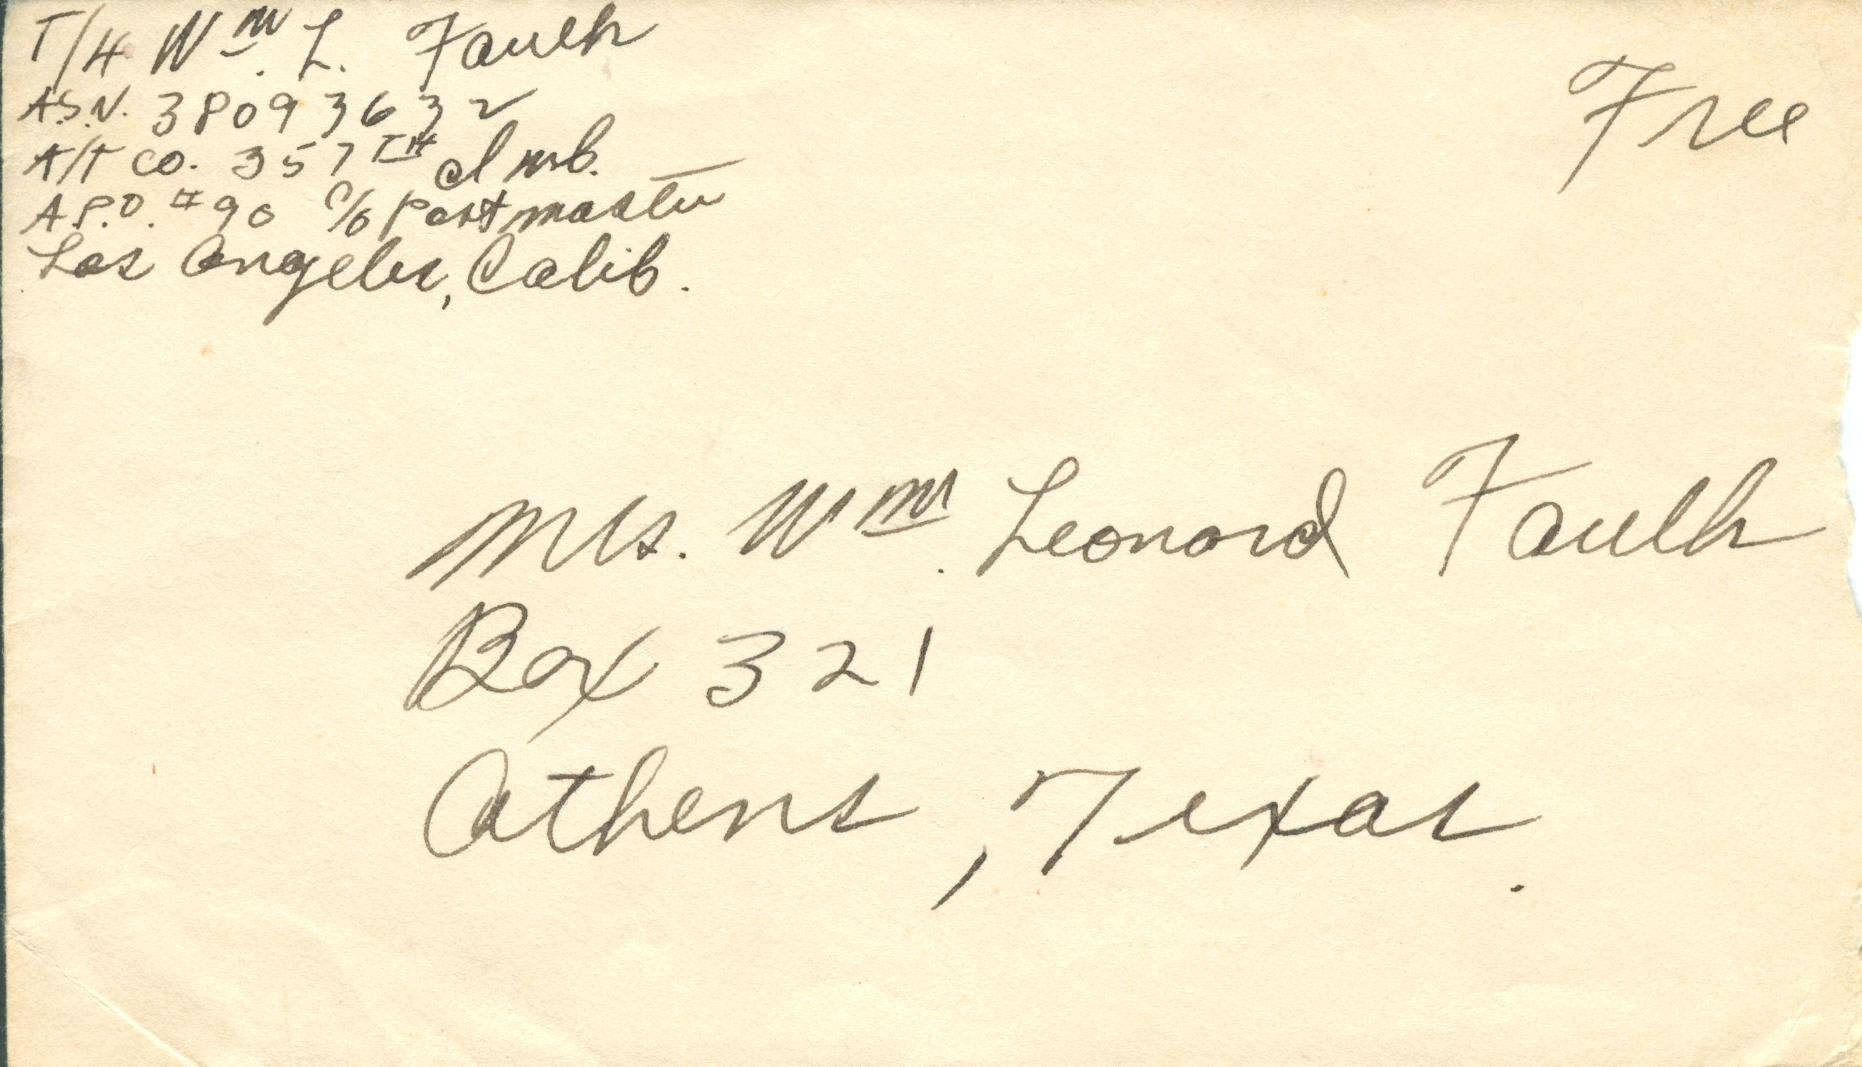 T/4 Wm. L. Faulk
A.S.N. 38093632
A/T Co. 357TH Inf.
A.P.O. #90 c/o Postmaster
Los Angeles, Calif.
Free
Mrs. Wm. Leonard Faulk
Box 321
Athens, Texas.